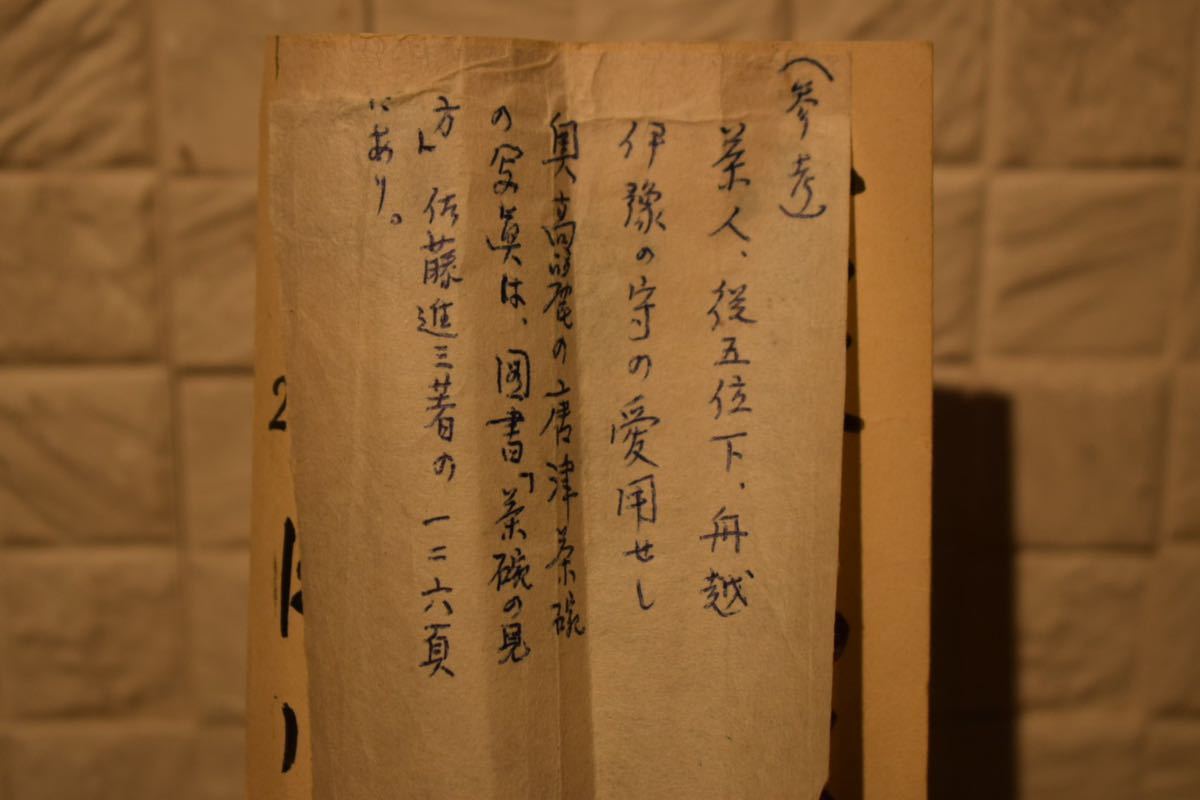 (参考)
茶人、従五位下、舟越
伊豫の守の愛用せし
奥高麗の唐津茶碗
の写真は、図書「茶碗の見
方」佐藤進三著の一二六頁
にあり。
2